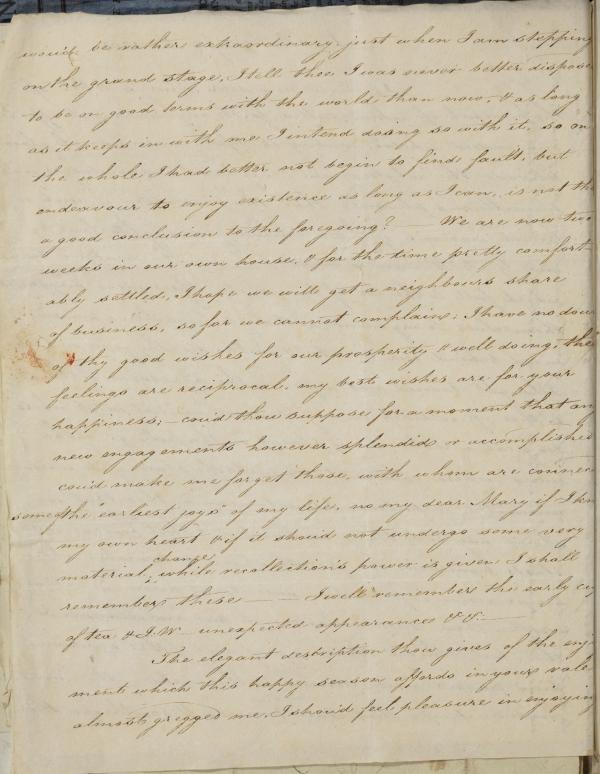 would be rather extraordinary just when I am stepping
on the grand stage, I tell thee I was never better dispose
to be on good terms with the world than now, & as long
as it keeps in with me I intend doing so with it, so on
the whole I had better not begin to find fault, but
endeavour to enjoy existence as long as I can, is not th
a good conclusion to the foregoing? — We are now two
weeks in our own house, & for the time pretty comfort
ably settled, I hope we will get a neighbours share
of business, so far we cannot complain; I have no dou
of thy good wishes for our prosperity & well doing, the
feelings are reciprocal, my best wishes are for your
happiness; — coud thou suppose for a moment that an
new engagements however splendid or accomplished
coud make me forget those, with whom are connec
some of the "earliest joys" of my life, no my dear Mary if I kn
my own heart & if it should not undergo some very
change
material, while recollection's power is given I shall
remember these — — I well remember the early cu
of tea & J.W— unexpected appearance &c. —
The elegant description thou gives of the enj
ments which this happy season affords in your vale
almost gregged me, I shoud feel pleasure in enjoying